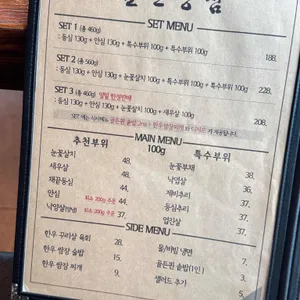 SET MENU
SET 1 (총 460g)
: 등심 130g + 안심 130g + 특수부위 100g + 특수부위 100g 188.
SET 2 (총 560g)
: 등심 130g + 안심 130g + 눈꽃살치 100g + 특수부위 100g + 특수부위 100g 228.
SET 3 (총 460g) 평일 한정판매
: 등심 130g + 안심 130g + 눈꽃살치 100g + 새우살 100g 208.
SET 메뉴 식사메뉴
MAIN MENU
100g
추천부위
눈꽃살치 48.
새우살 48.
채끝등심 44.
안심 44.
낙엽살 37.
특수부위
눈꽃부채 38.
낙엽살 38.
제비추리 37.
등심추리 37.
업진살 37.
SIDE MENU
한우 꾸리살 육회 28.
한우 쌈장 술밥 15.
한우 쌈장 찌개 9.
물/비빔 냉면 7.
골든퀸 솥밥(1인) 3.
샐러드 추가 5.